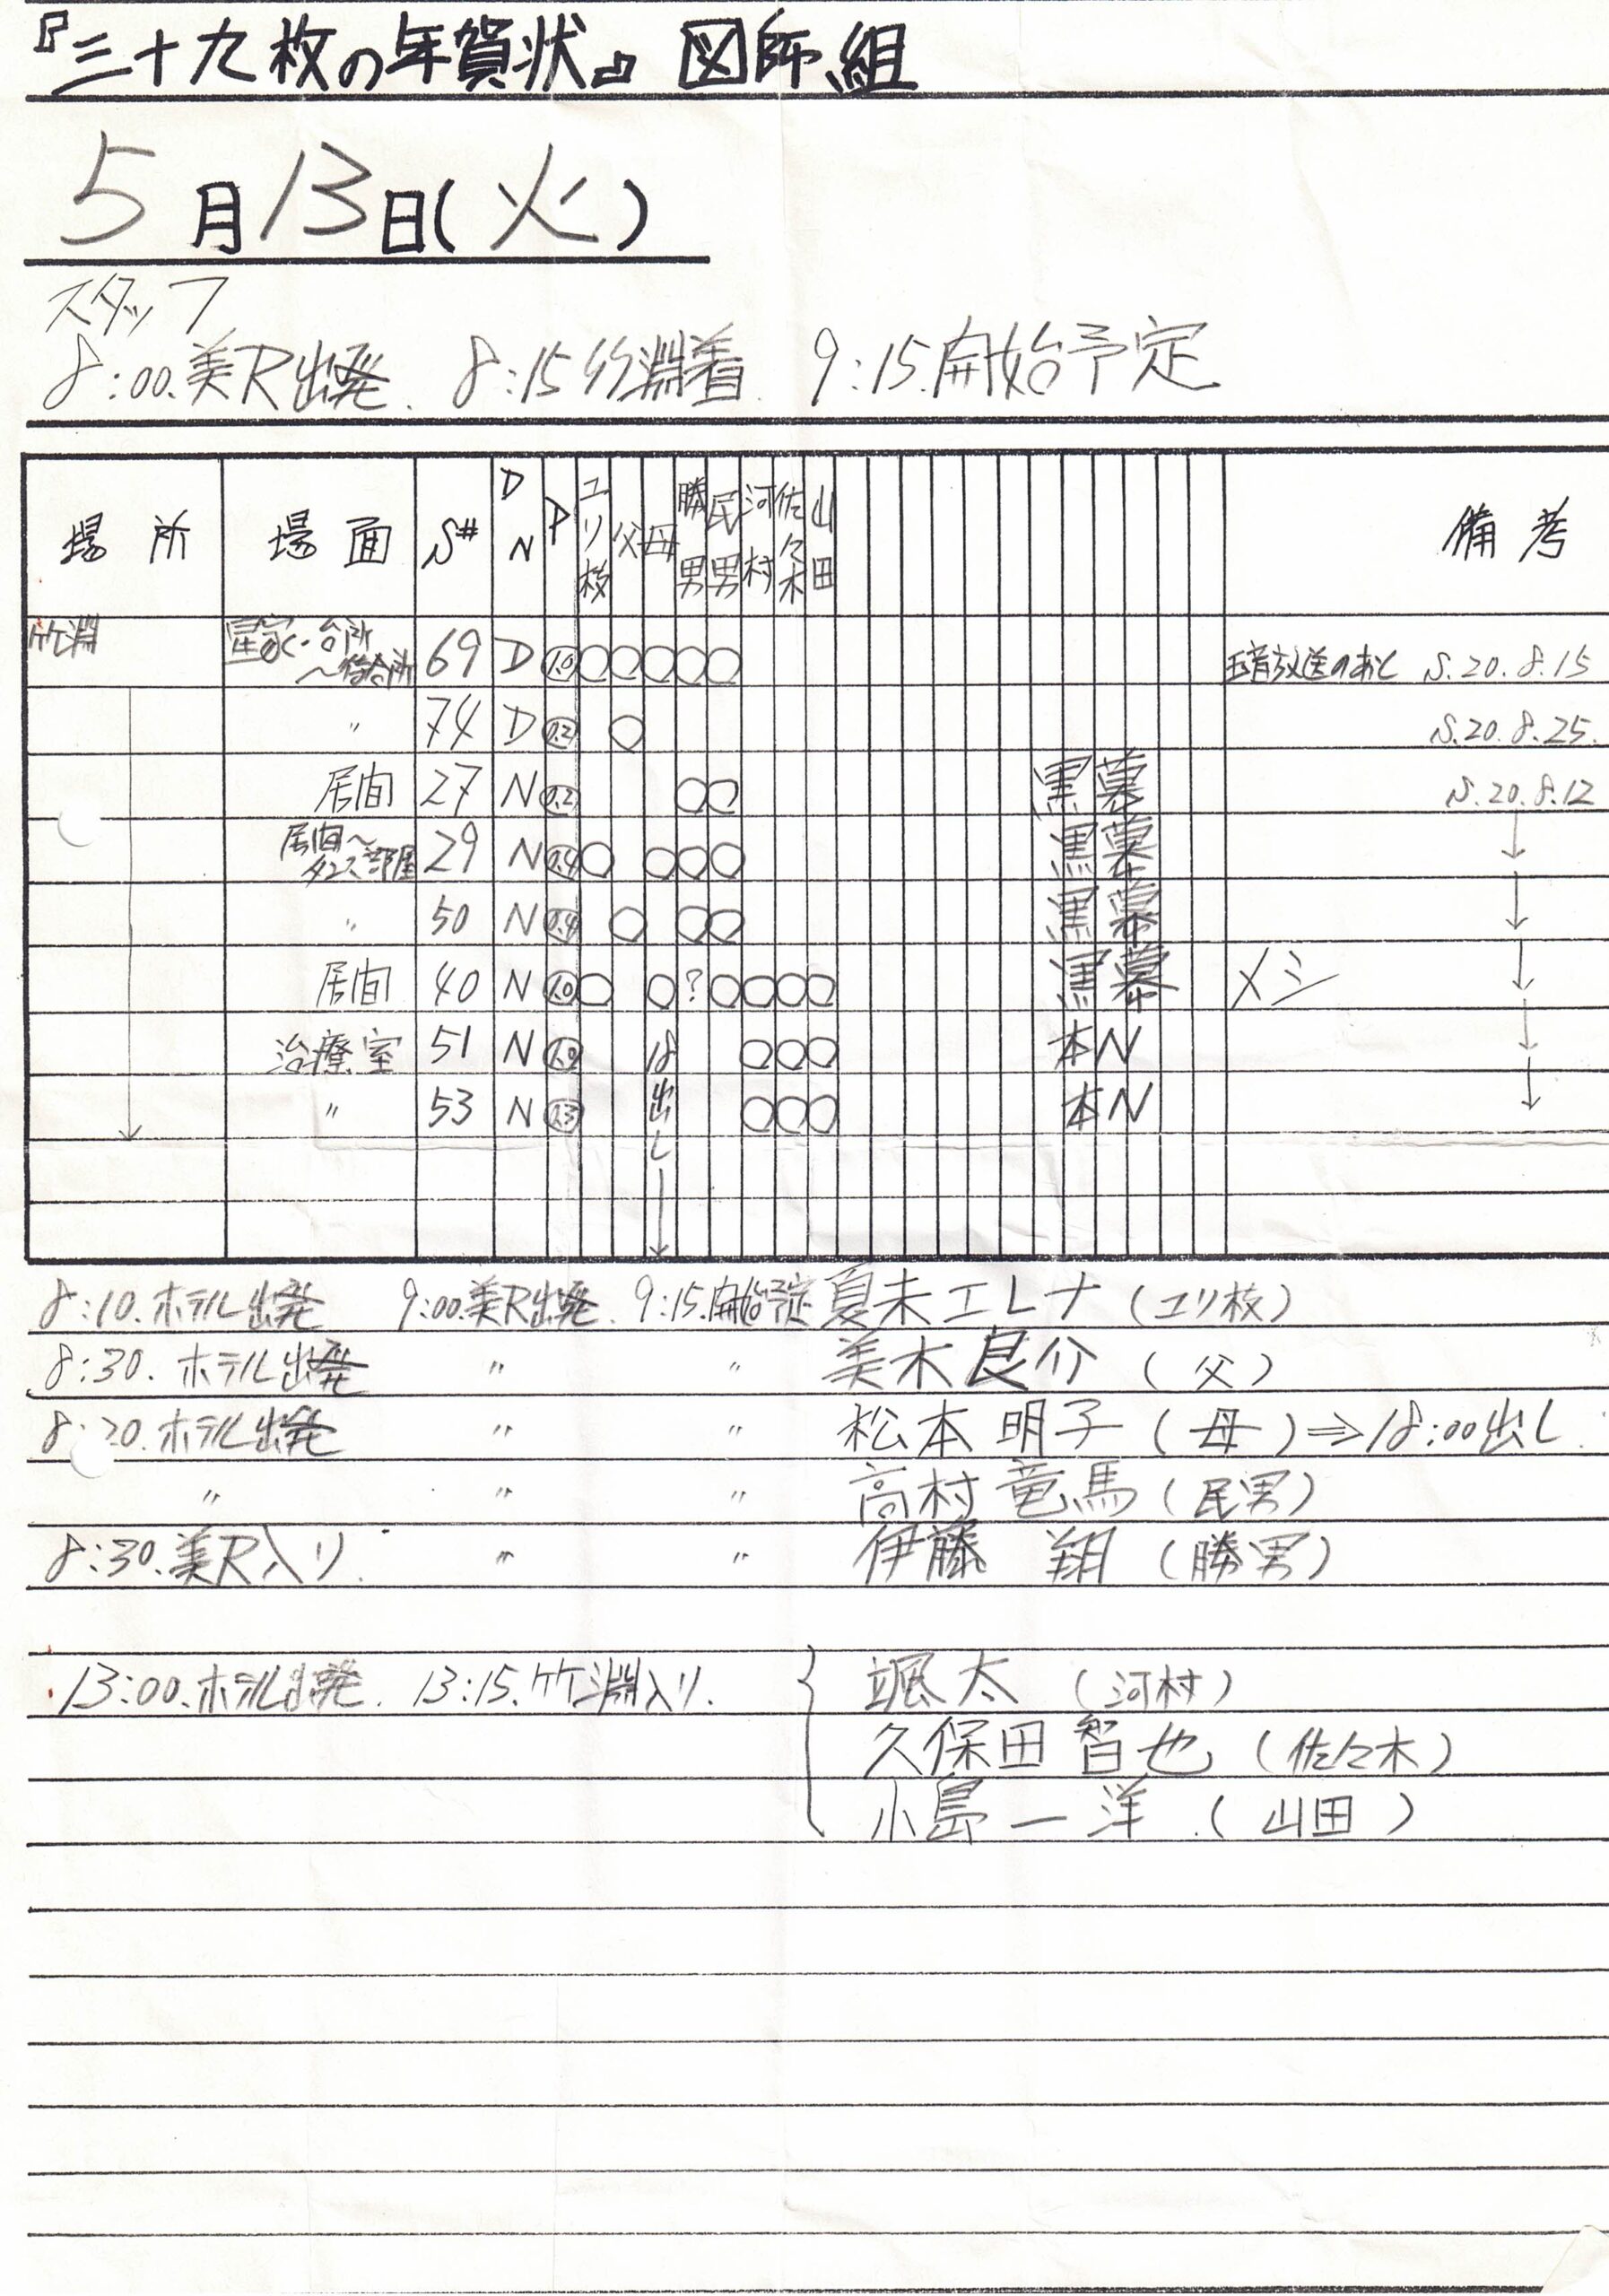 『三十九枚の年賀状』 図師組
5月13日(火)
スタッフ
8:00.美R出発. 8:15竹淵着. 9:15.開始予定
場所 場面 S# D N P ユリ枝 父 母 勝男 民男 河村 佐々木 山田 備考
竹淵 星家・台所〜待合所 69 D 1.0 ○ ○ ○ ○ ○ 玉音放送のあと S.20.8.15
〃 74 D 0.2 ○ S.20.8.25.
居間 27 N 0.2 ○ ○ 黒幕 S.20.8.12
居間〜タンス部屋 29 N 0.4 ○ ○ ○ ○ 黒幕 ↓
〃 50 N 0.4 ○ ○ ○ 黒幕 ↓
居間 40 N 1.0 ○ ○ ? ○ ○ ○ ○ 黒幕 メシ ↓
治療室 51 N 18出し→ ○ ○ ○ 本N ↓
〃 53 N 0.3 ○ ○ ○ 本N ↓
8:10.ホテル出発 9:00.美R出発. 9:15.開始予定 夏未エレナ(ユリ枝)
8:30. ホテル出発 〃 〃 美木良介(父)
8:20.ホテル出発 〃 〃 松本明子(母)⇒18:00出し
〃 〃 〃 高村竜馬(民男)
8:30.美R入り. 〃 〃 伊藤 翔(勝男)
13:00.ホテル出発. 13:15.竹淵入り. 颯太(河村)
久保田智也(佐々木)
小島一洋.(山田)